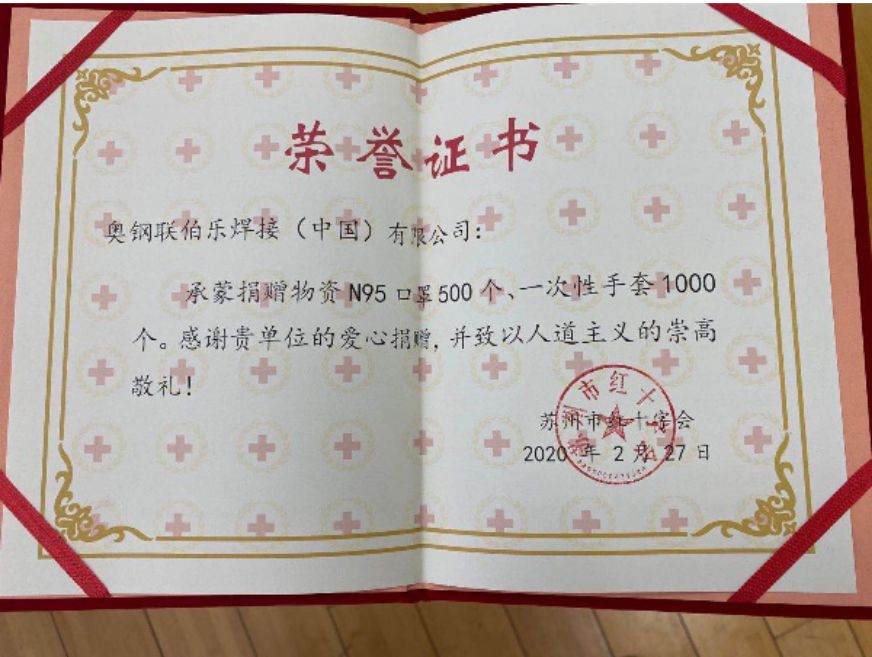 荣誉证书
奥钢联伯乐焊接（中国）有限公司：
承蒙捐赠物资N95口罩500个、一次性手套1000
个。感谢贵单位的爱心捐赠，并致以人道主义的崇高
敬礼！
苏州市红十字会
2020年2月27日
苏州市红十字会